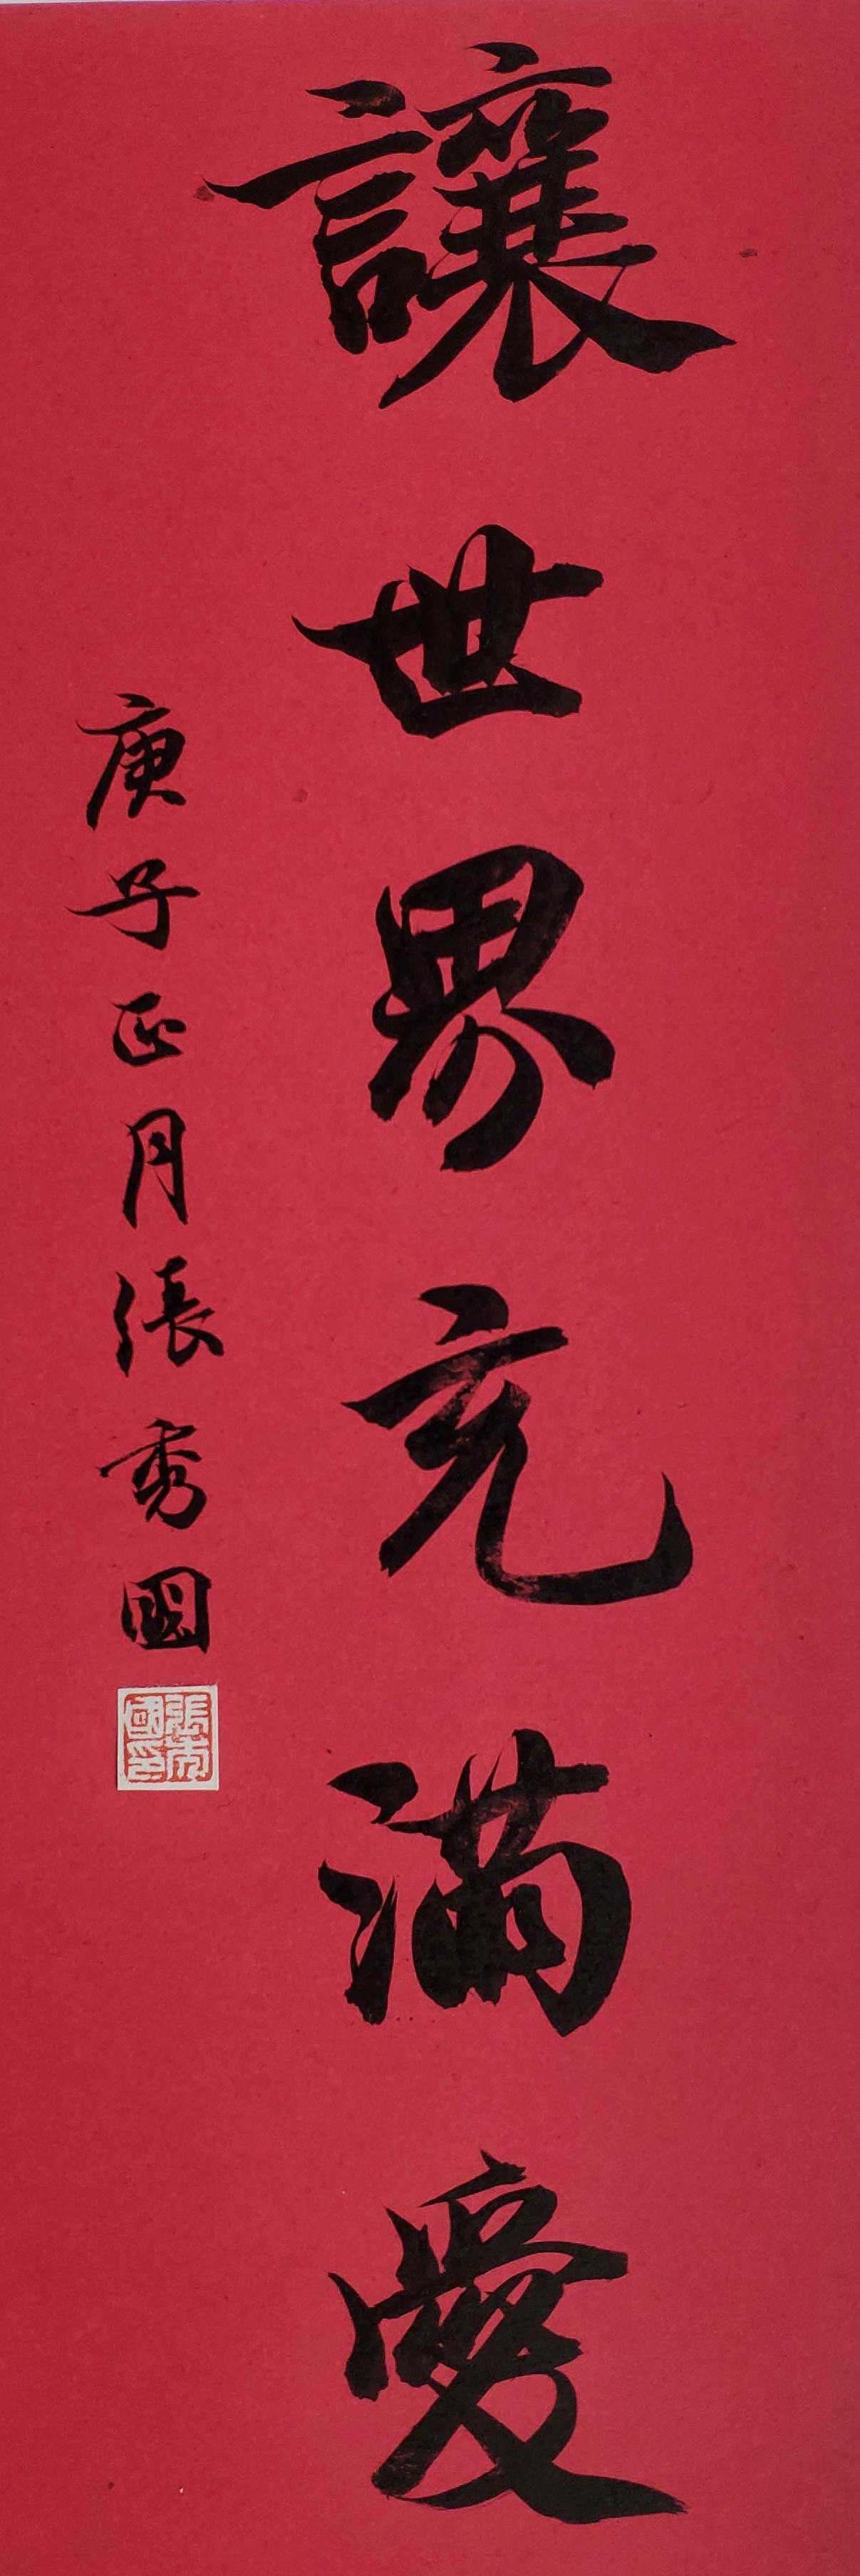 讓世界充滿愛
庚子正月張秀國
張秀國印